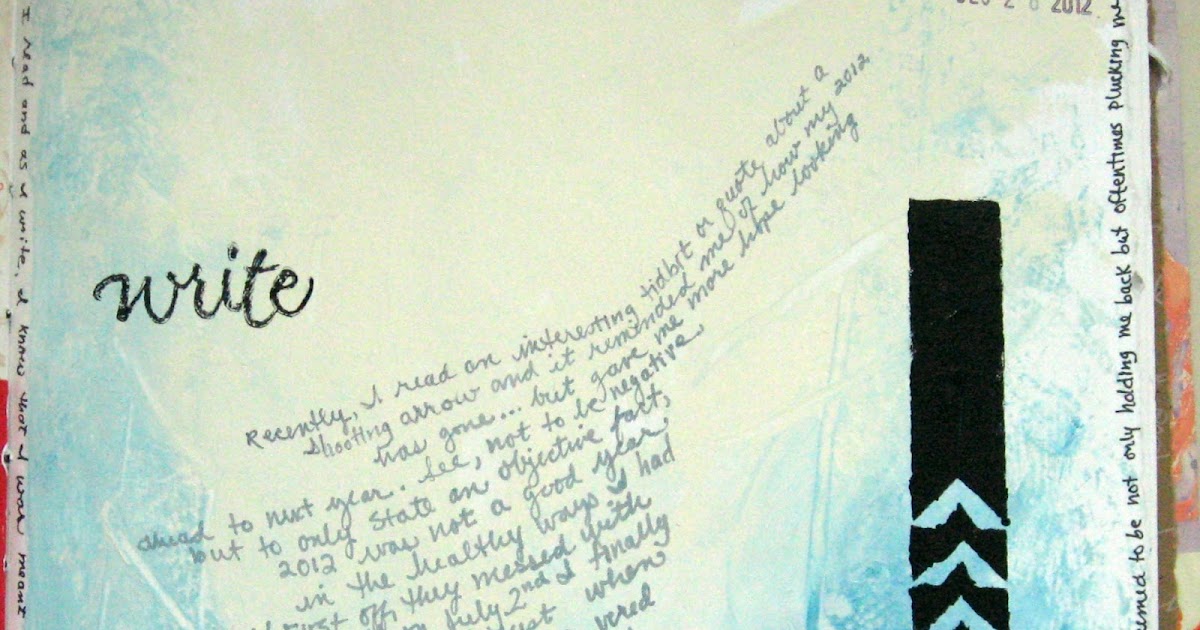 DEC 2 8 2012
write
Recently, I read an interesting tidbit or quote about a
shooting arrow and it reminded me of how my 2012
has gone... but gave me more hope looking
ahead to next year. See, not to be negative
but to only state an objective fact,
2012 was not a good year
in the healthy ways I had
First off, they messed with
July 2nd and I finally
when
I read and as I write, I know that I was meant
emed to be not only holding me back but oftentimes plucking me